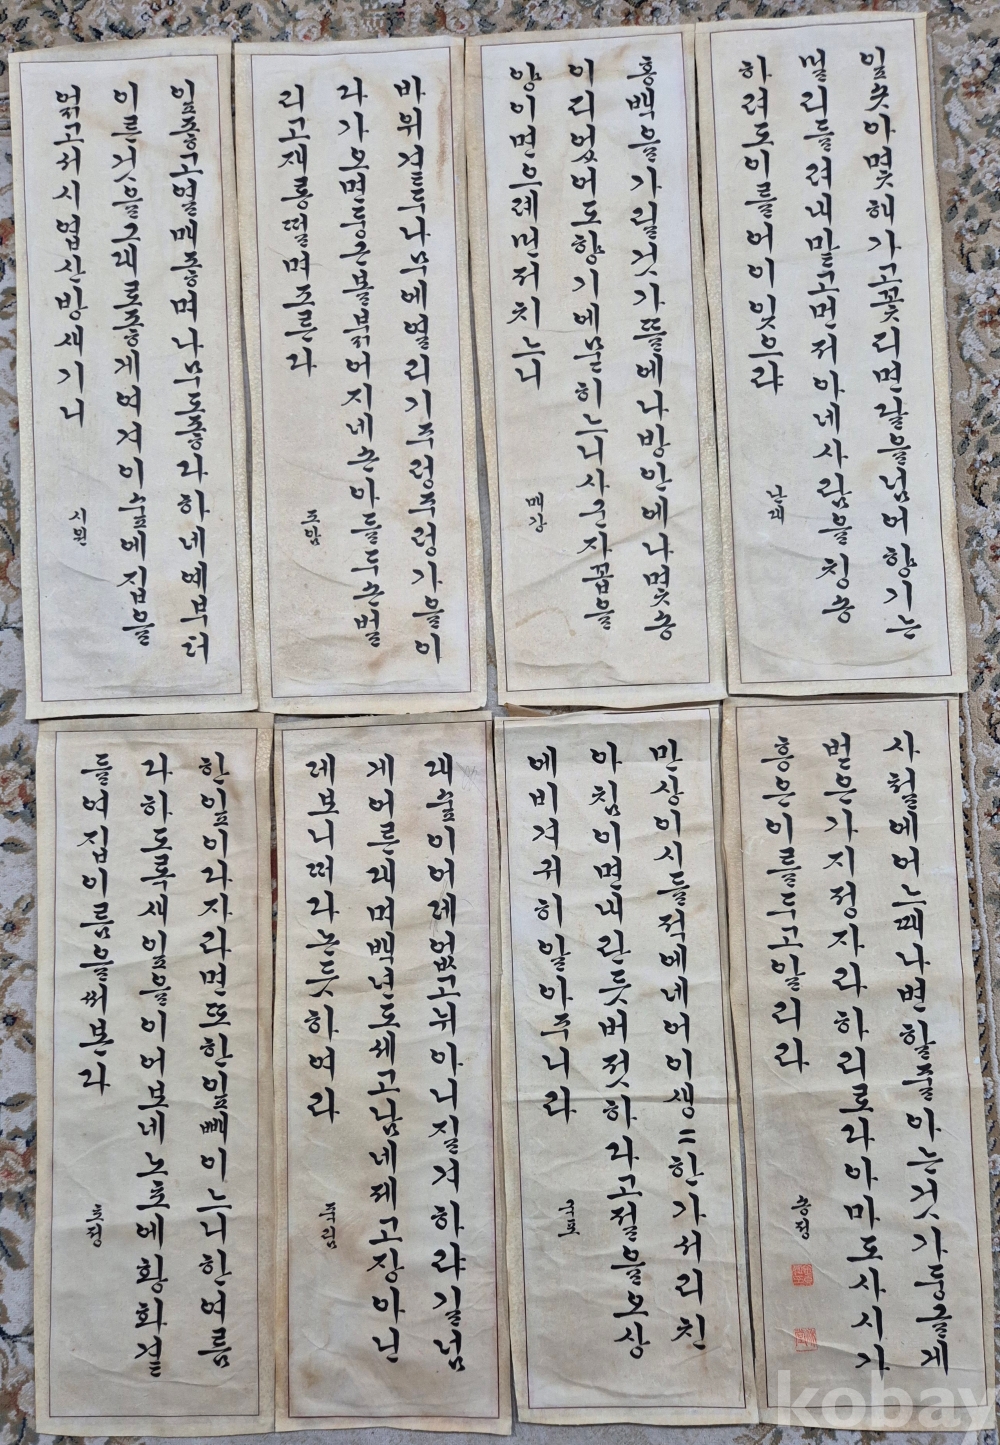 잎솟아몇해가고꽃피면달을넘어향기는
멀리들려내맡고먼저아네사람을칭송
하려도이를어이잊으랴
홍백을가릴것가뜰에나방안에나몇송
이피었어도향기에묻히느니사군자꼽을
양이면으레먼저치느니
매강
바위겉두나무에열리기주렁주렁가을이
라가오면둥근볼붉어지네손아들두손벌
리고재롱떨며조른다
조암
잎좋고열매좋며나무도좋다하네예부터
이른것을그대로좋게여겨이숲에집을
얽고서시엽산방새기니
시원
사철에어느때나변할줄아는것가둥글게
벋은가지정자라하리로다아마도사시가
흥은이를두고일리라
송정
만상이시들적에네어이생〃한가서리친
아침이면내란듯버젓하다고절을오상
에비겨귀히알아주니라
국포
대숲이어레없고뉘아니질겨하랴길넘
게어른대며백년도체고남네제고장아닌
데보니떠라는듯하여라
죽림
한잎이자라면또한잎빼이느니한여름
다하도록새잎을이어보네노트에황화곁
들여집이름을써본다
초정
kobay